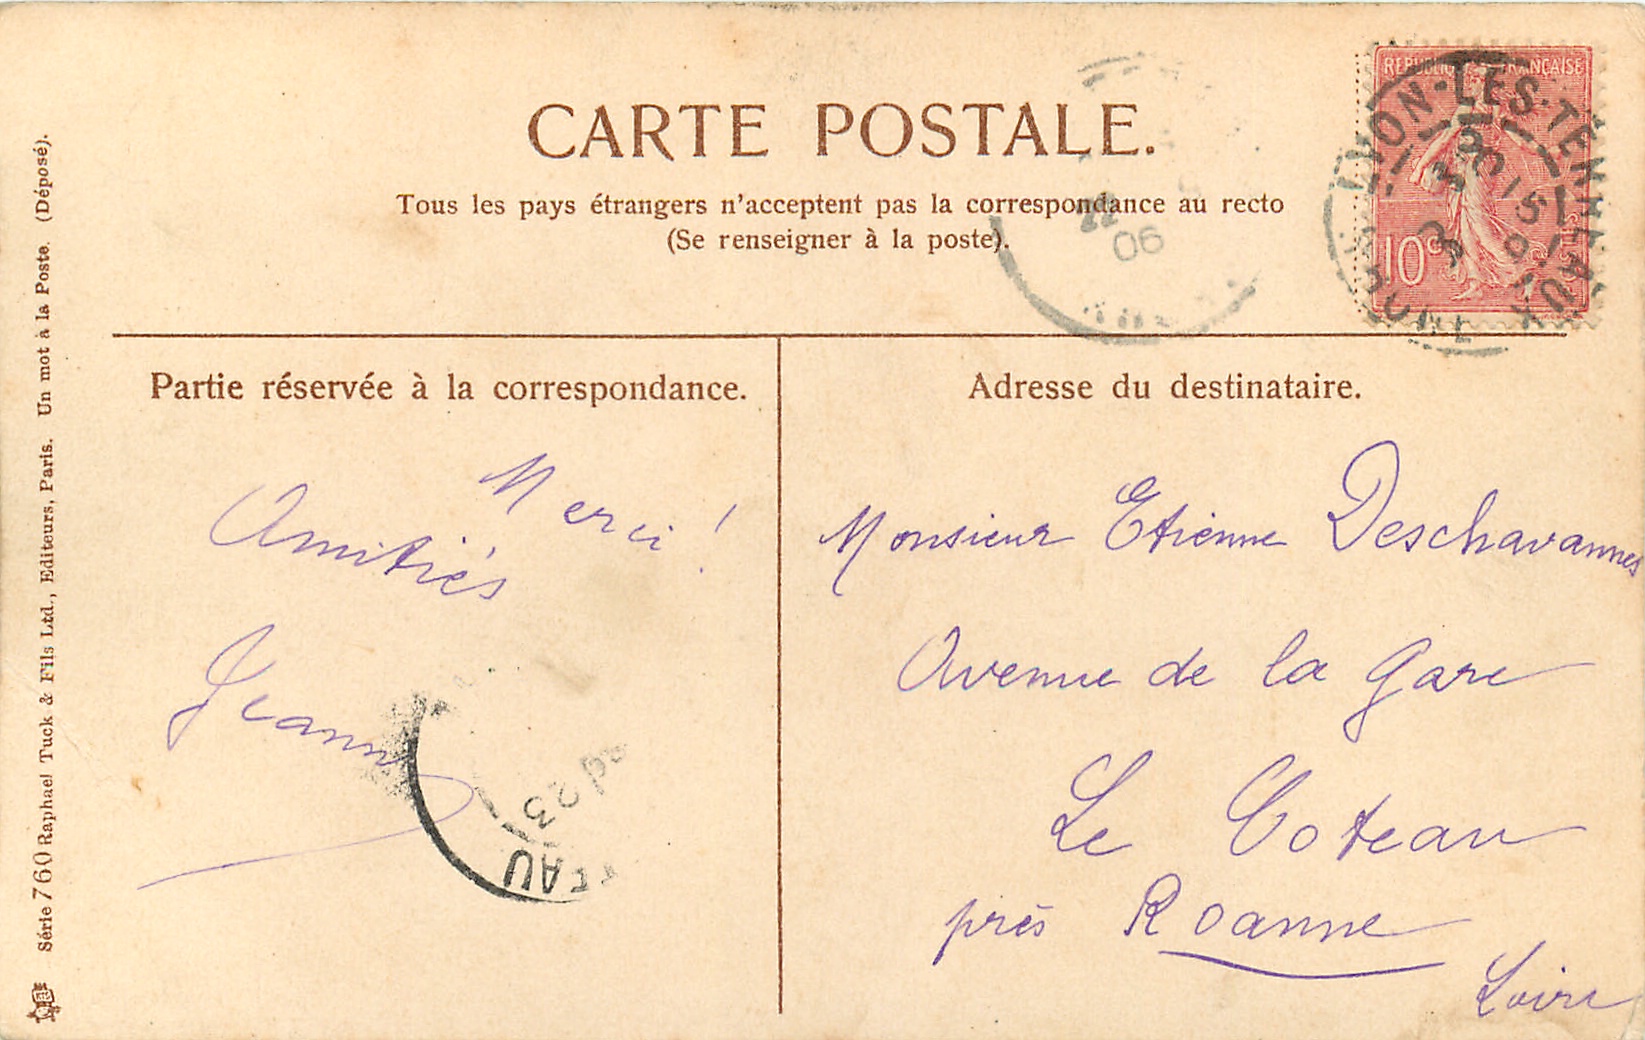 CARTE POSTALE.
Tous les pays étrangers n'acceptent pas la correspondance au recto
(Se renseigner à la poste).
REPUBLIQUE FRANÇAISE
10c
LYON-LES-TERREAUX
RHONE
06
Partie réservée à la correspondance.
Merci !
Amitiés
Jeanne
23
TEAU
Adresse du destinataire.
Monsieur Etienne Deschavannes
Avenue de la Gare
Le Coteau
près Roanne
Loire
Série 760 Raphael Tuck & Fils Ltd., Editeurs, Paris. Un mot à la Poste. (Déposé).